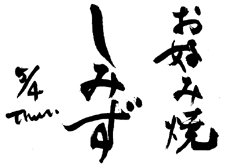 お好み焼
しみず
5/4
Thurs.